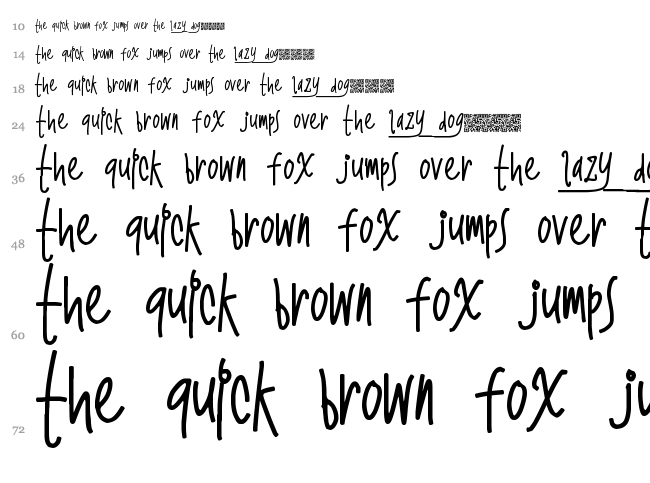 10 the quick brown fox jumps over the lazy dog
14 the quick brown fox jumps over the lazy dog
18 the quick brown fox jumps over the lazy dog
24 the quick brown fox jumps over the lazy dog
36 the quick brown fox jumps over the lazy do
48 the quick brown fox jumps over t
60 the quick brown fox jumps
72 the quick brown fox ju